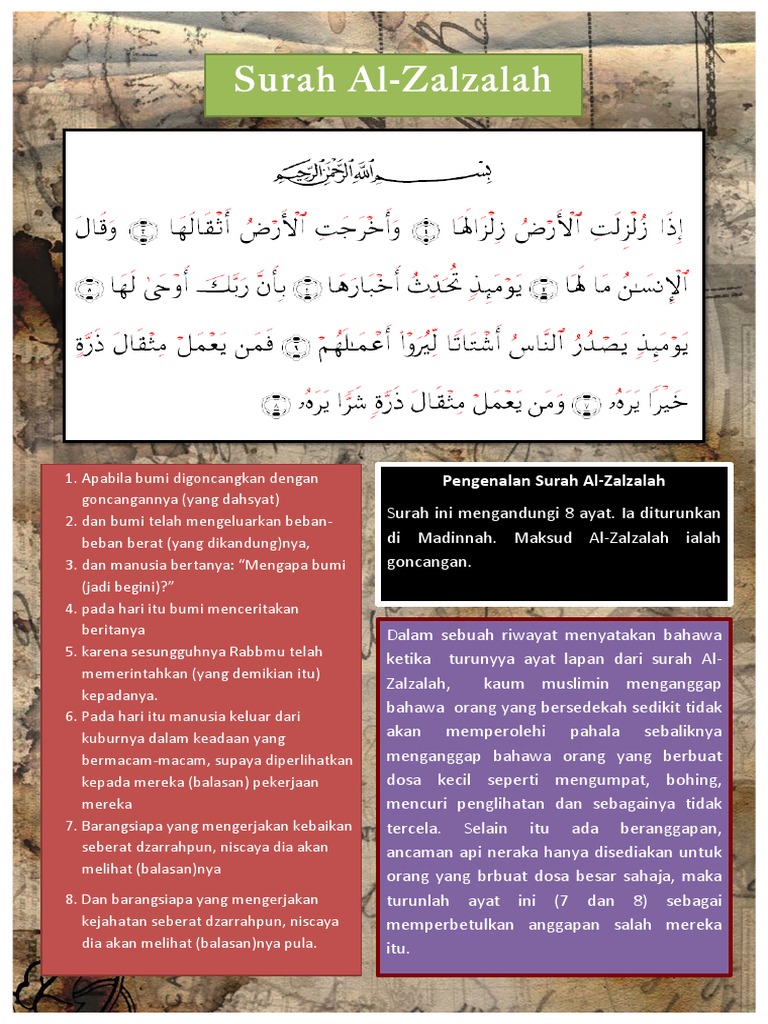 Surah Al-Zalzalah
بِسْمِ اللَّهِ الرَّحْمَٰنِ الرَّحِيمِ
إِذَا زُلْزِلَتِ ٱلْأَرْضُ زِلْزَالَهَا ﴿١﴾ وَأَخْرَجَتِ ٱلْأَرْضُ أَثْقَالَهَا ﴿٢﴾ وَقَالَ
ٱلْإِنسَـٰنُ مَا لَهَا ﴿٣﴾ يَوْمَئِذٍ تُحَدِّثُ أَخْبَارَهَا ﴿٤﴾ بِأَنَّ رَبَّكَ أَوْحَىٰ لَهَا ﴿٥﴾
يَوْمَئِذٍ يَصْدُرُ ٱلنَّاسُ أَشْتَاتًا لِّيُرَوْا۟ أَعْمَـٰلَهُمْ ﴿٦﴾ فَمَن يَعْمَلْ مِثْقَالَ ذَرَّةٍ
خَيْرًا يَرَهُۥ ﴿٧﴾ وَمَن يَعْمَلْ مِثْقَالَ ذَرَّةٍ شَرًّا يَرَهُۥ ﴿٨﴾
1. Apabila bumi digoncangkan dengan
goncangannya (yang dahsyat)
2. dan bumi telah mengeluarkan beban-
beban berat (yang dikandung)nya,
3. dan manusia bertanya: “Mengapa bumi
(jadi begini)?”
4. pada hari itu bumi menceritakan
beritanya
5. karena sesungguhnya Rabbmu telah
memerintahkan (yang demikian itu)
kepadanya.
6. Pada hari itu manusia keluar dari
kuburnya dalam keadaan yang
bermacam-macam, supaya diperlihatkan
kepada mereka (balasan) pekerjaan
mereka
7. Barangsiapa yang mengerjakan kebaikan
seberat dzarrahpun, niscaya dia akan
melihat (balasan)nya
8. Dan barangsiapa yang mengerjakan
kejahatan seberat dzarrahpun, niscaya
dia akan melihat (balasan)nya pula.
Pengenalan Surah Al-Zalzalah
Surah ini mengandungi 8 ayat. Ia diturunkan
di Madinnah. Maksud Al-Zalzalah ialah
goncangan.
Dalam sebuah riwayat menyatakan bahawa
ketika turunyya ayat lapan dari surah Al-
Zalzalah, kaum muslimin menganggap
bahawa orang yang bersedekah sedikit tidak
akan memperolehi pahala sebaliknya
menganggap bahawa orang yang berbuat
dosa kecil seperti mengumpat, bohing,
mencuri penglihatan dan sebagainya tidak
tercela. Selain itu ada beranggapan,
ancaman api neraka hanya disediakan untuk
orang yang brbuat dosa besar sahaja, maka
turunlah ayat ini (7 dan 8) sebagai
memperbetulkan anggapan salah mereka
itu.